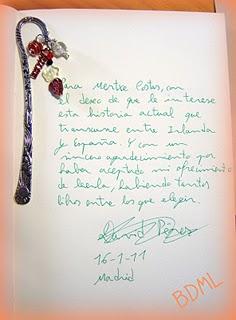 Para Mentxe Costas, con
el deseo de que le interese
esta historia actual que
transcurre entre Irlanda
y España. Y con un
sincero agradecimiento por
haber aceptado mi ofrecimiento
de leerla, habiendo tantos
libros entre los que elegir.
David Pérez
16-1-11
Madrid
BDML